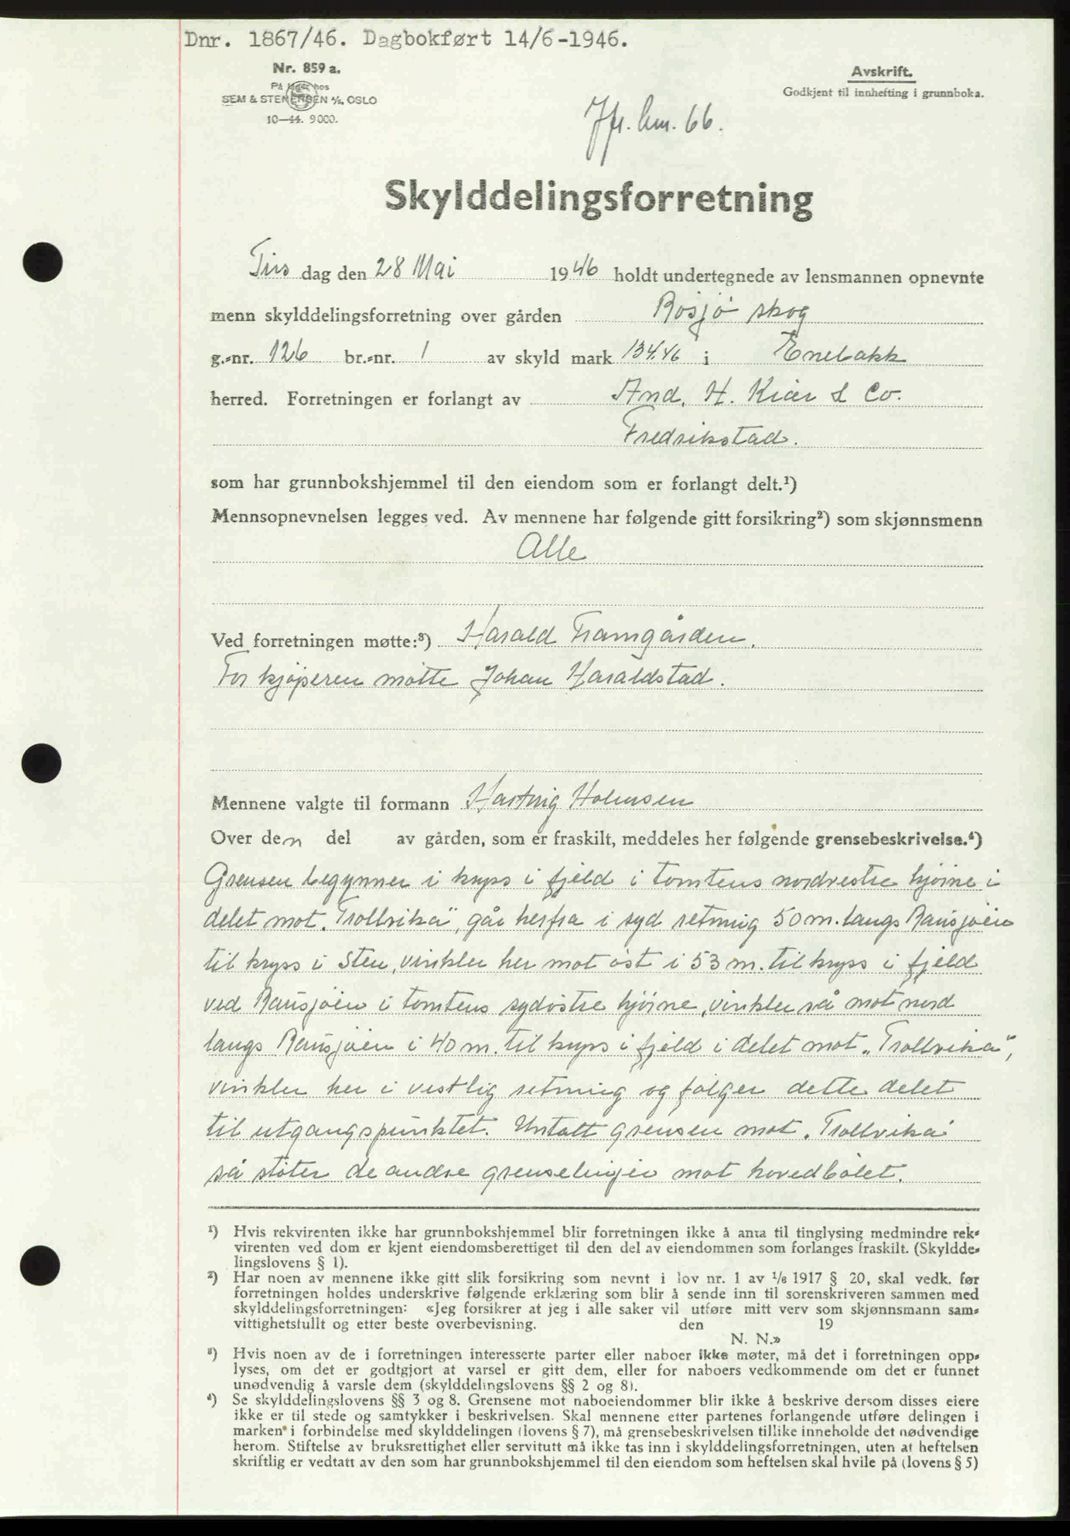 Dnr. 1867/46. Dagbokført 14/6-1946.
Nr. 859 a.
På lager hos
SEM & STENERSEN A/S. OSLO
10—44. 9000.
Avskrift.
Godkjent til innhefting i grunnboka.
Jfr. bnr. 66.
Skylddelingsforretning
Tirs dag den 28 Mai 1946 holdt undertegnede av lensmannen opnevnte
menn skylddelingsforretning over gården Rosjø skog
g.-nr. 126 br.-nr. 1 av skyld mark 134.46 i Enebakk
herred. Forretningen er forlangt av And. H. Kiær & Co.
Fredrikstad.
som har grunnbokshjemmel til den eiendom som er forlangt delt.¹)
Mennsopnevnelsen legges ved. Av mennene har følgende gitt forsikring²) som skjønnsmenn
Alle
Ved forretningen møtte:³) Harald Framgården.
For kjøperen møtte Johan Haraldstad.
Mennene valgte til formann Hartvig Holmsen
Over den del av gården, som er fraskilt, meddeles her følgende grensebeskrivelse.⁴)
Grensen begynner i kryss i fjeld i tomtens nordvestre hjørne i
delet mot „Trollvika", går herfra i syd retning 50 m. langs Ransjøen
til kryss i Sten, vinkler her mot øst i 53 m. til kryss i fjeld
ved Ransjøen i tomtens sydøstre hjørne, vinkler så mot nord
langs Ransjøen i 40 m. til kryss i fjeld i delet mot „Trollvika",
vinkler her i vestlig retning og følger dette delet
til utgangspunktet. Untatt grensen mot „Trollvika"
så støter de andre grenselinjer mot hovedbølet.
¹) Hvis rekvirenten ikke har grunnbokshjemmel blir forretningen ikke å anta til tinglysing medmindre rek-
virenten ved dom er kjent eiendomsberettiget til den del av eiendommen som forlanges fraskilt. (Skyldde-
lingslovens § 1).
²) Har noen av mennene ikke gitt slik forsikring som nevnt i lov nr. 1 av 1/6 1917 § 20, skal vedk. før
forretningen holdes underskrive følgende erklæring som blir å sende inn til sorenskriveren sammen med
skylddelingsforretningen: «Jeg forsikrer at jeg i alle saker vil utføre mitt verv som skjønnsmann sam-
vittighetsfullt og etter beste overbevisning. den 19
N. N.»
³) Hvis noen av de i forretningen interesserte parter eller naboer ikke møter, må det i forretningen opp-
lyses, om det er godtgjort at varsel er gitt dem, eller for naboers vedkommende om det er funnet
unødvendig å varsle dem (skylddelingslovens §§ 2 og 8).
⁴) Se skylddelingslovens §§ 3 og 8. Grensene mot naboeiendommer blir ikke å beskrive dersom disses eiere
ikke er til stede og samtykker i beskrivelsen. Skal mennene etter partenes forlangende utføre delingen i
marken i forbindelse med skylddelingen (lovens § 7), må grensebeskrivelsen tillike inneholde det nødvendige
herom. Stiftelse av bruksrettighet eller servitutt må ikke tas inn i skylddelingsforretningen, uten at heftelsen
skriftlig er vedtatt av den som har grunnbokshjemmel til den eiendom som heftelsen skal hvile på (lovens § 5)